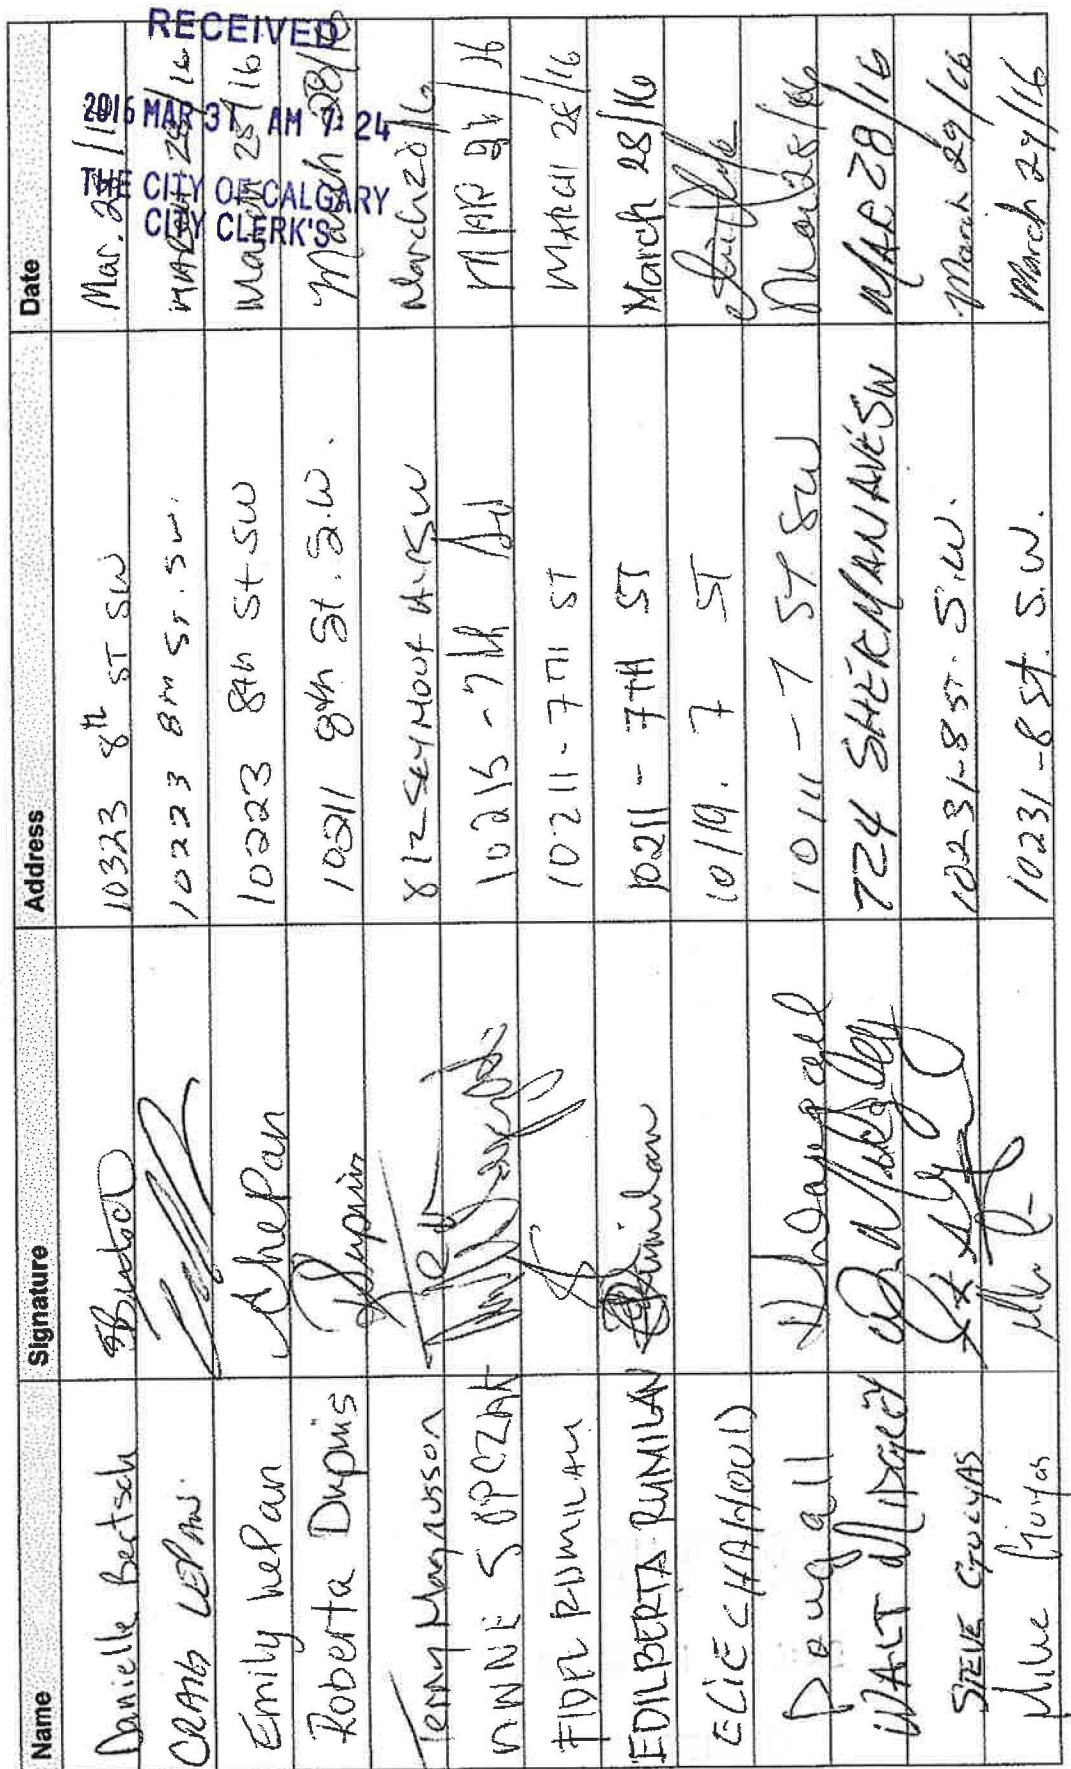 RECEIVED
2016 MAR 31 AM 7:24
THE CITY OF CALGARY
CITY CLERK'S
Name Signature Address Date
Danielle Bertsch 10323 8th ST SW Mar. 28/16
CRAIG LEPAN 10223 8TH ST. SW. MARCH 28/16
Emily LePan 10223 8th St SW March 28/16
Roberta Dupuis 10211 8th St. S.W. March 28/16
Terry Magnusson 812 SEYMOUR AVE SW March 28/16
10215 - 7th MAR 28/16
FIDEL RUMILAN 10211 - 7TH ST MARCH 28/16
EDILBERTA RUMILAN 10211 - 7TH ST March 28/16
ELIE 10119. 7 ST
Dougall 10111 - 7 ST SW Mar 28/16
WALT MIDGLEY 724 SHERMAN AVE SW MAR 28/16
STEVE 10231-8 ST. S.W. March 29/16
Mike 10231-8 St. S.W. March 29/16